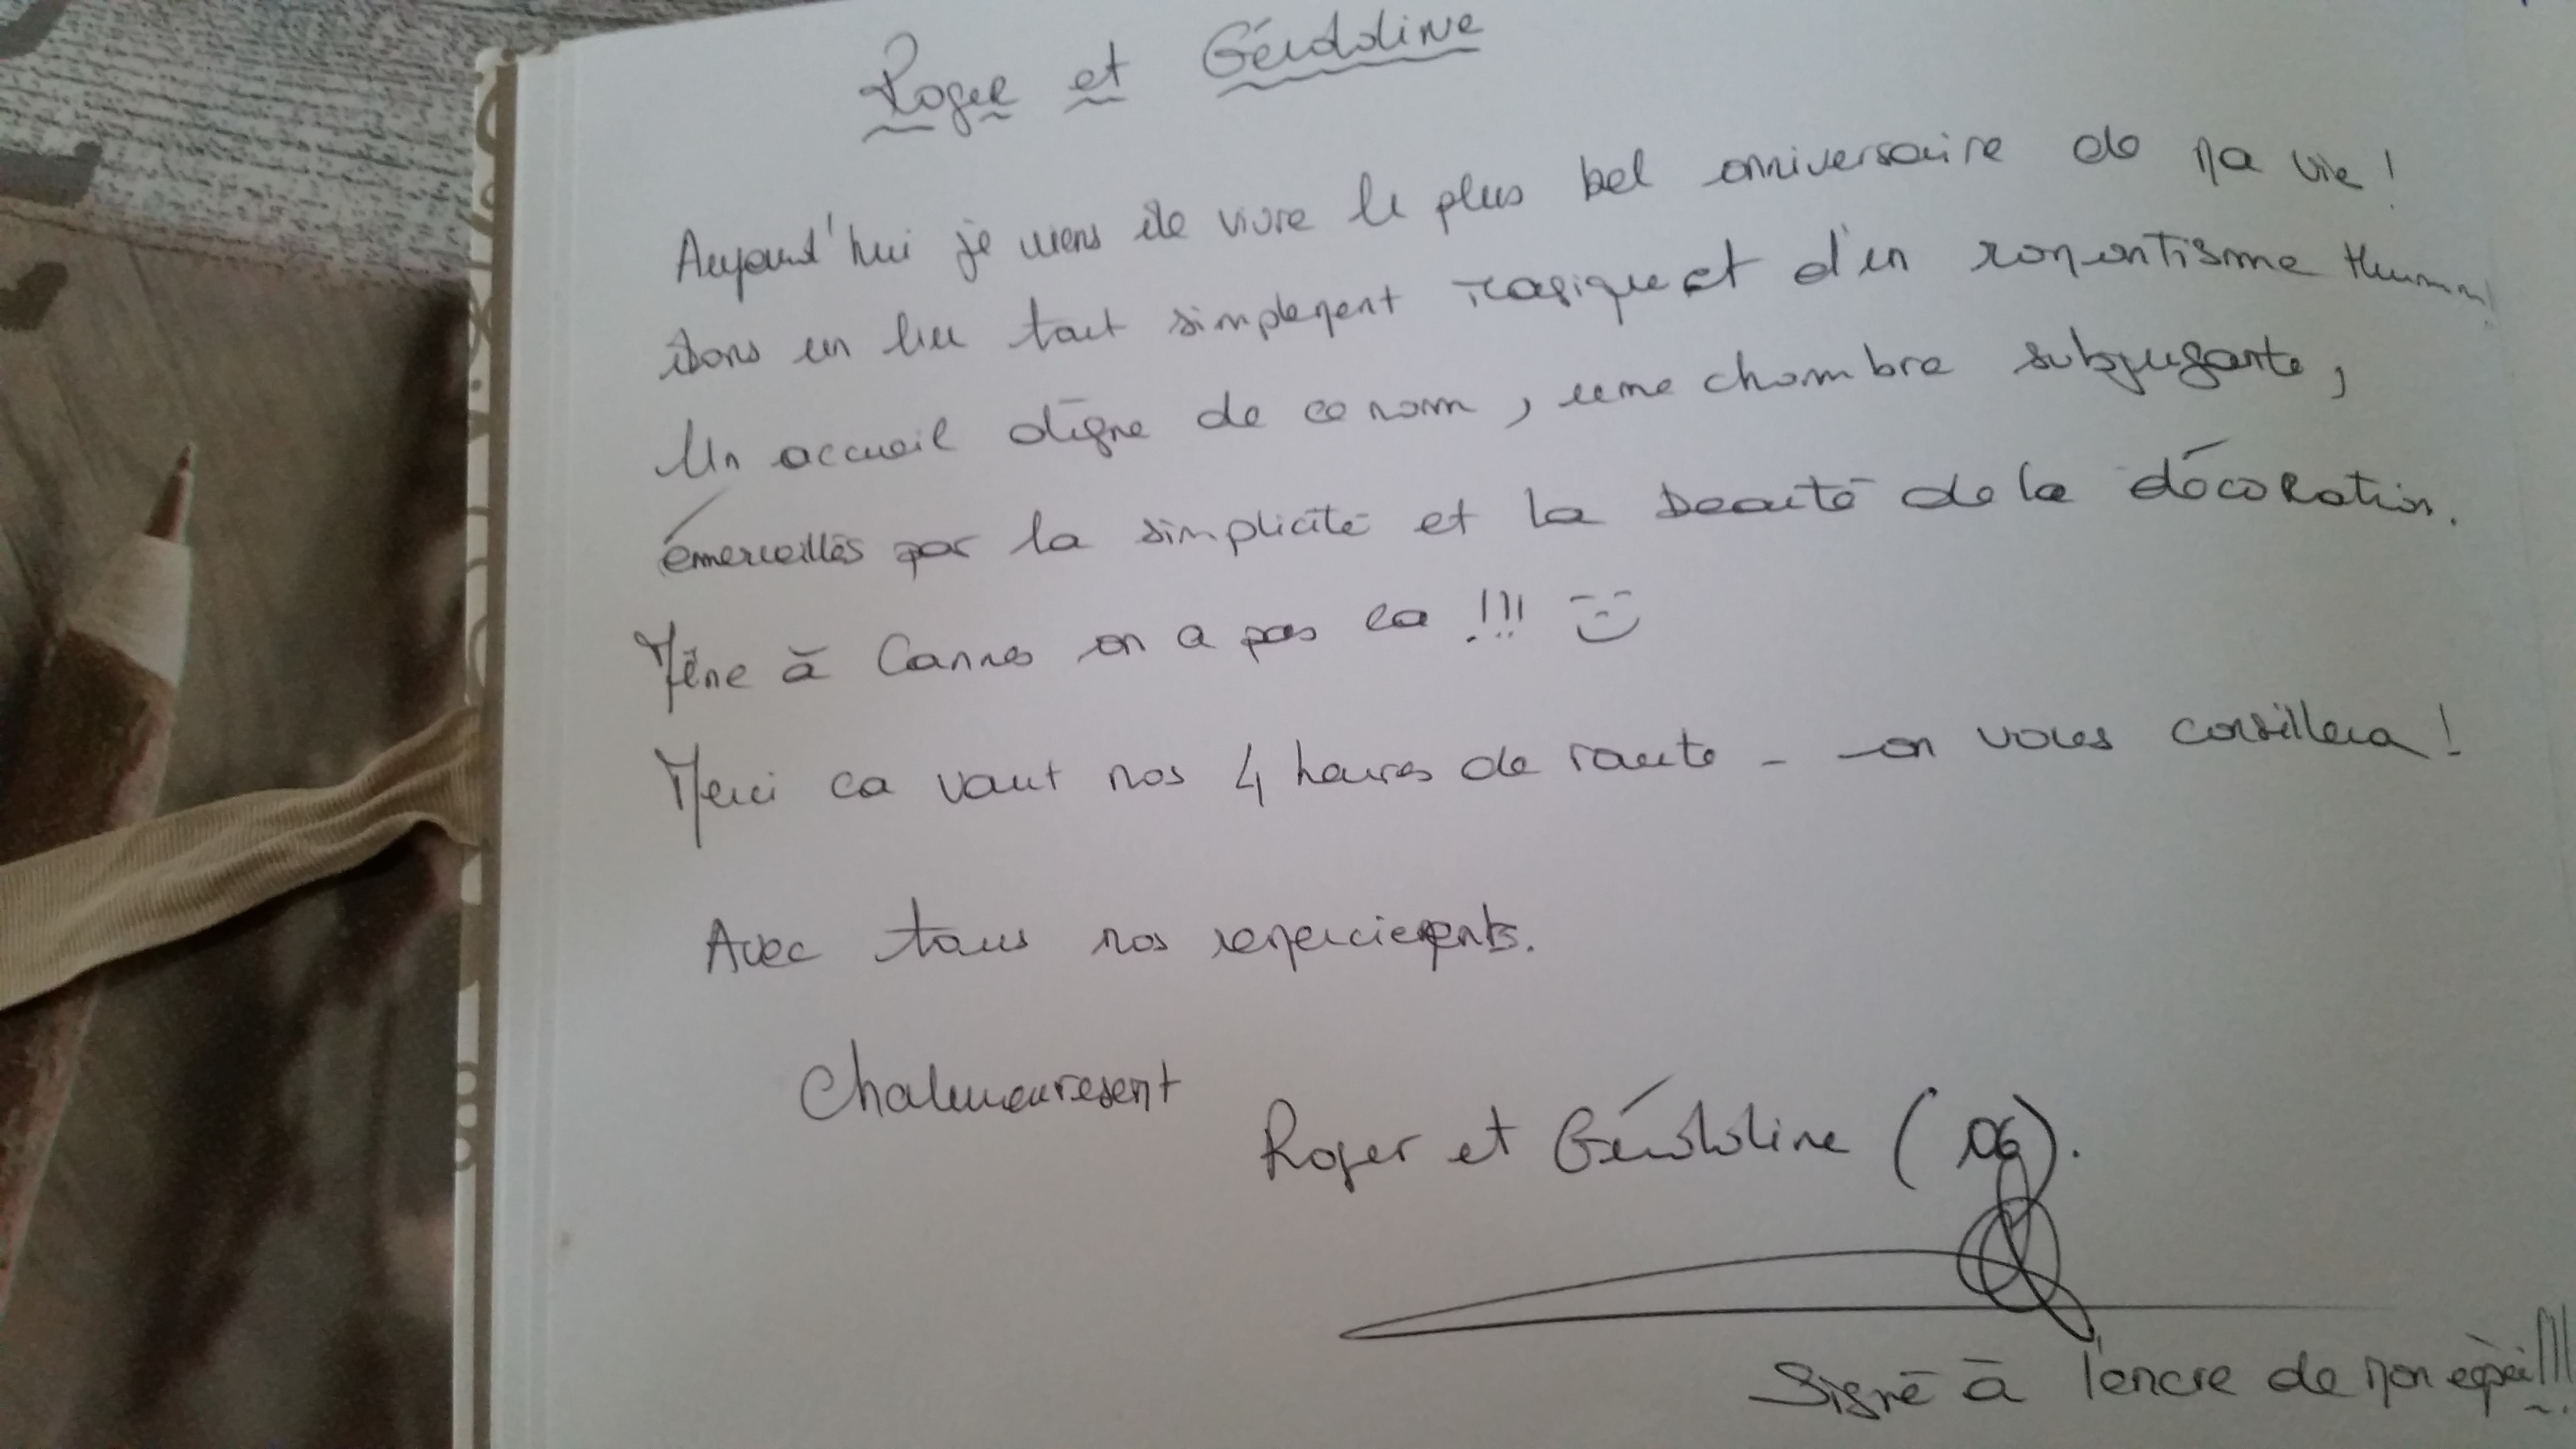 Roger et Géraldine
Aujourd'hui je viens de vivre le plus bel anniversaire de ma vie !
dans un lieu tout simplement magique et d'un romantisme Hummm!
Un accueil digne de ce nom, une chambre subjugante,
émerveillés par la simplicité et la beauté de la décoration.
Même à Cannes on a pas ca !!!
Merci ca vaut nos 4 heures de route - on vous conseillera !
Avec tous nos remerciements.
Chaleureusement
Roger et Géraldine (06).
Signé à l'encre de mon épée!!!